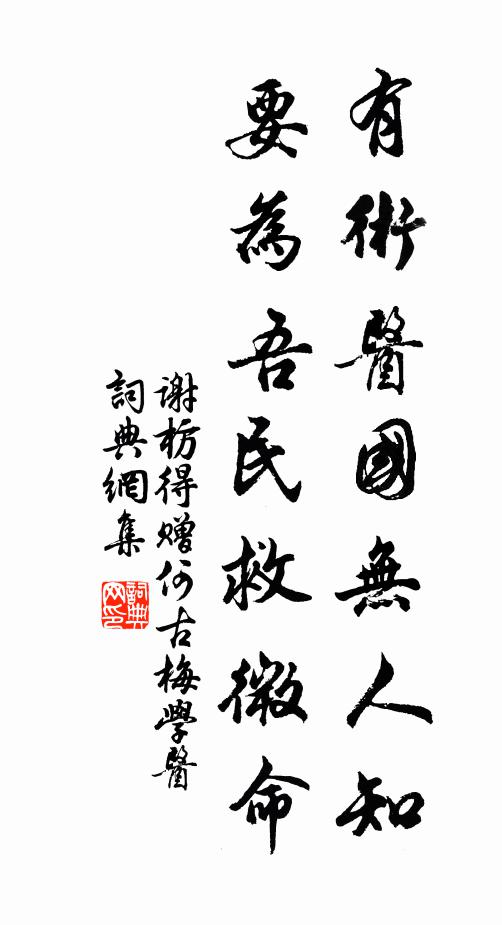 有術醫國無人知
要為吾民救微命
謝枋得贈何古梅學醫
詞典網集
詞典
网印